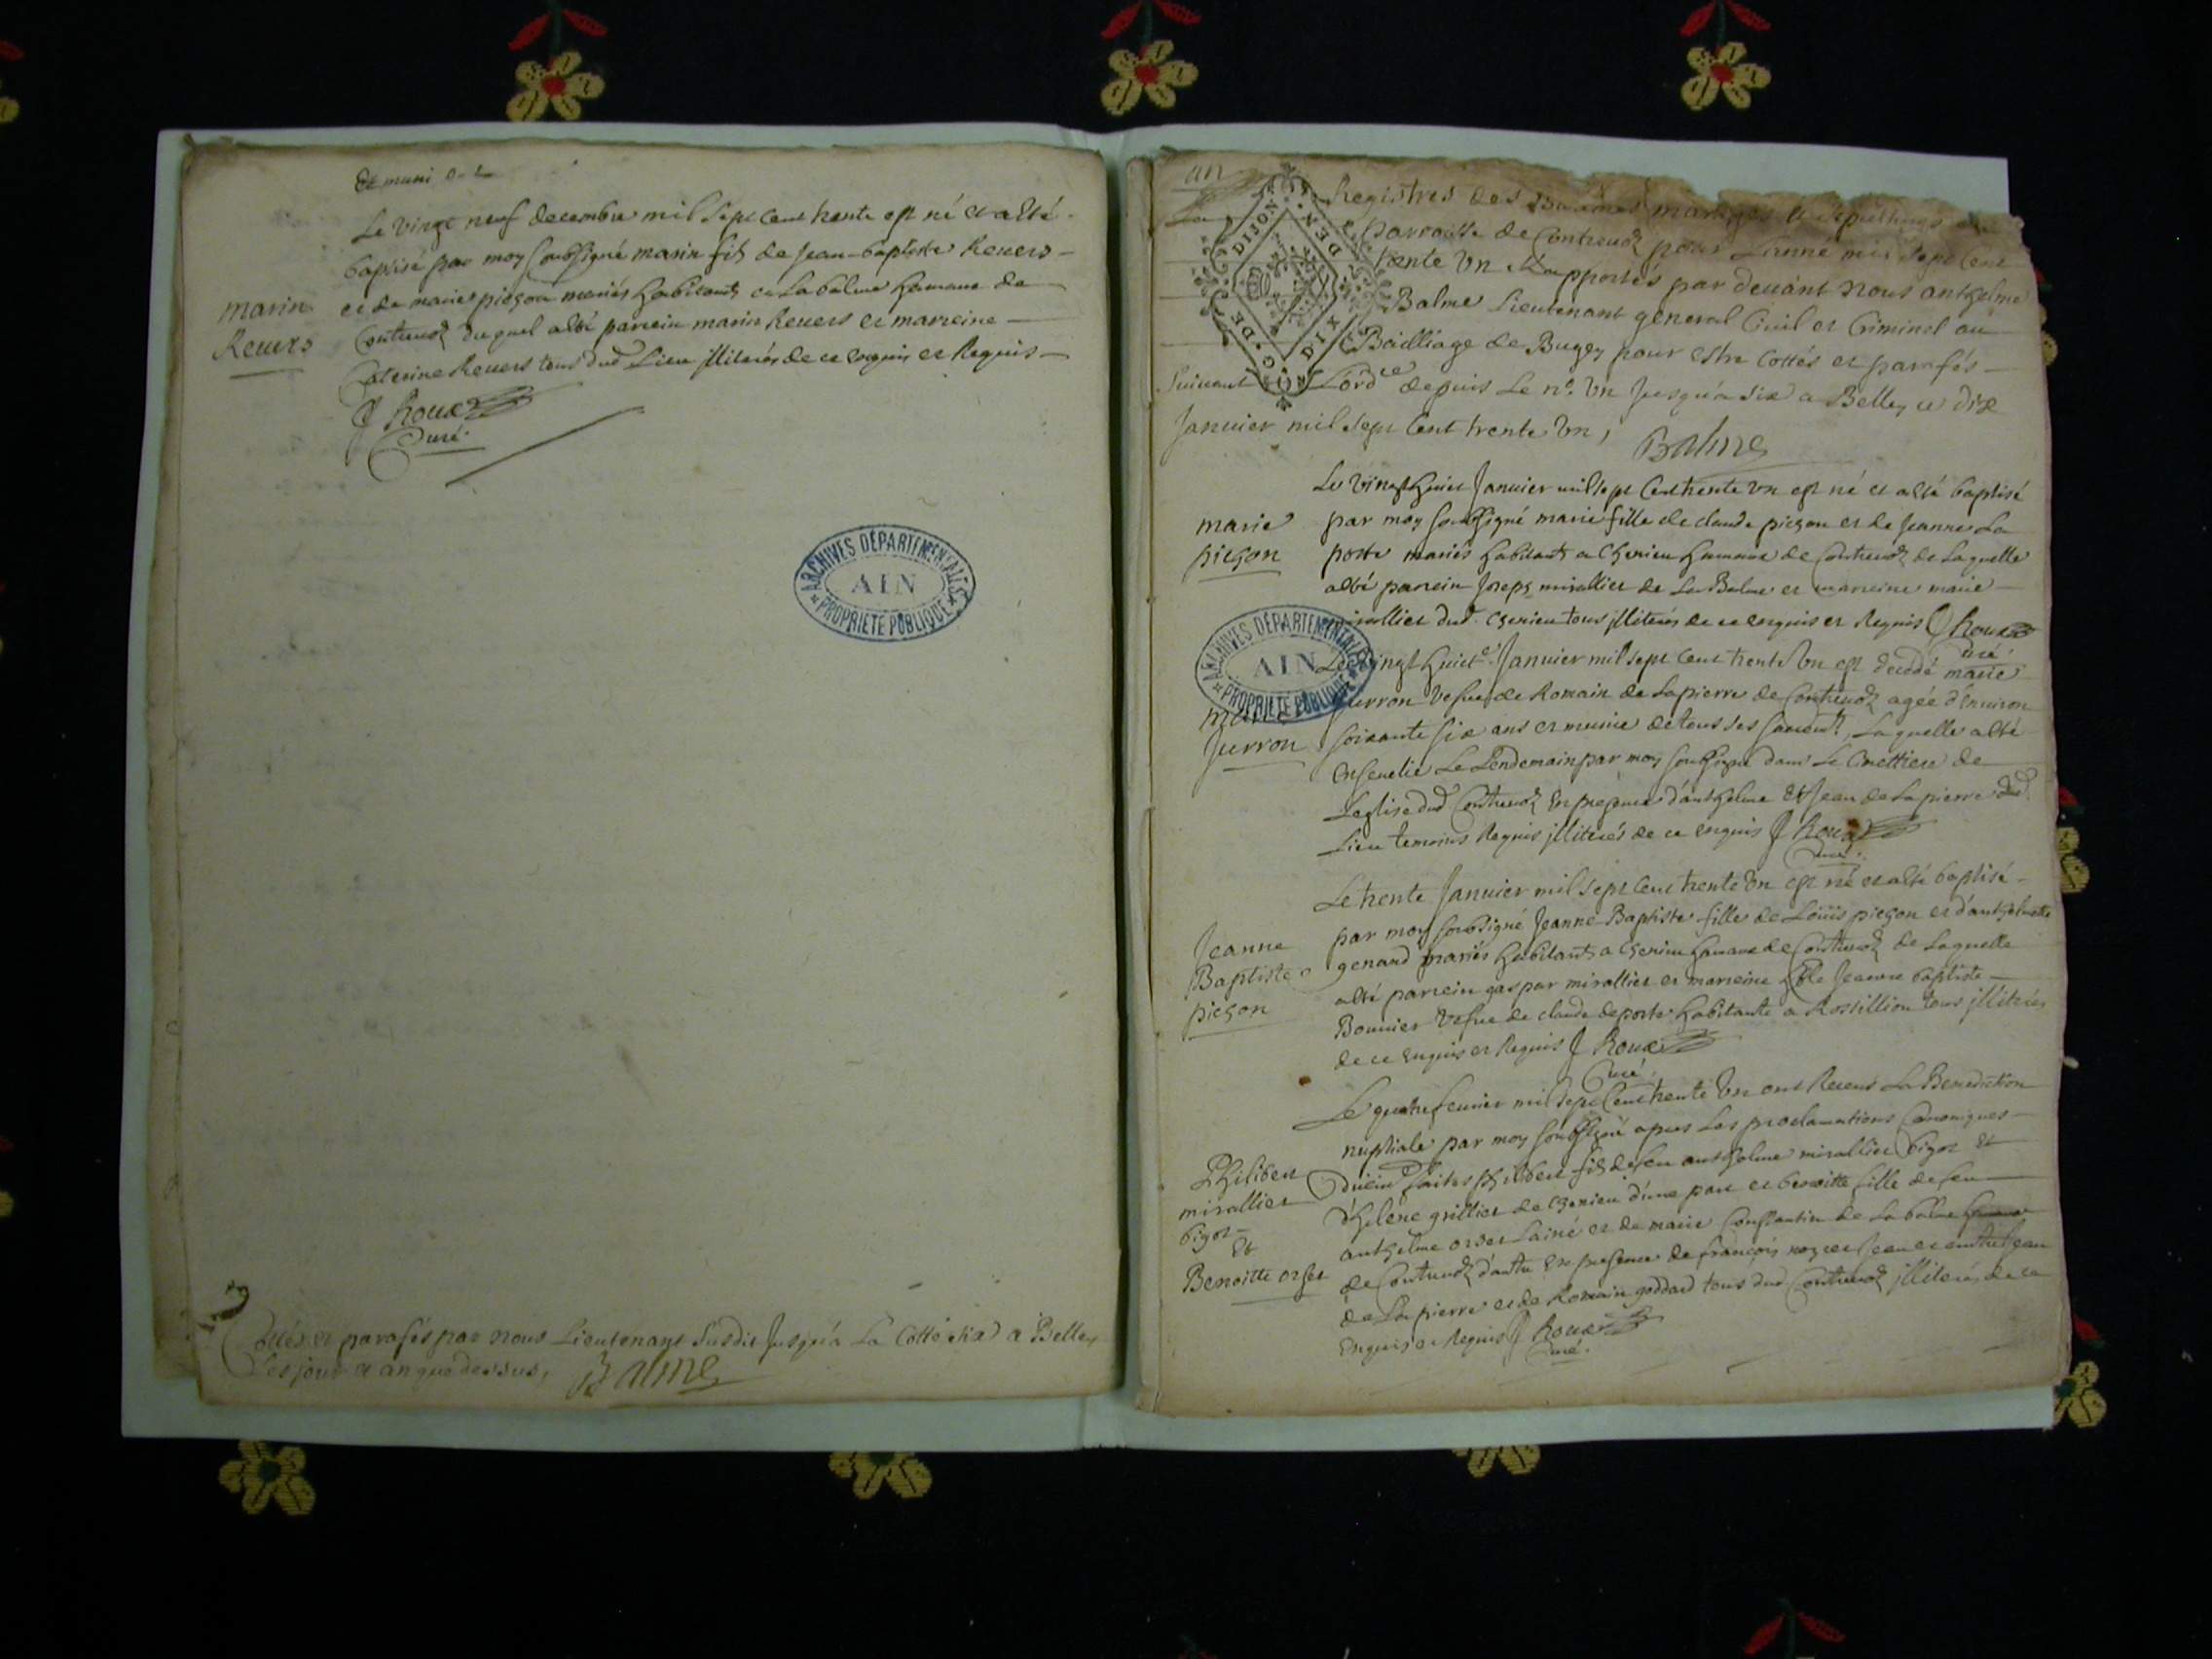 Et muni
Le vingt neuf decembre mil sept cent trente est né et a esté
baptisé par moy soubsigné marin fils de Jean-baptiste Reuers
et de marie piegon mariés habitants a La balme hameau de
Contreuoz duquel a esté parrein marin Reuers et marreine
Caterine Reuers tous dud Lieu illiterés de ce enquis et Requis
marin
Reuers
J Roux
Curé
Cottés et parafés par nous Lieutenant susdit Jusqu'a La Cotte six a Belley
Les jour et an que dessus,
Balme
un
DIJON
G. DE
DEN
DIX
Registres des Batêmes mariages et sepultures
parroisse de Contreuoz pour L'anné mil sept Cent
trente Un Rapportés par deuant Nous anthelme
Balme Lieutenant general Ciuil et Criminel au
Bailliage de Bugey pour estre Cottés et parafés
Suiuant L'ord.ce depuis Le n.o Un Jusqu'a six a Belley ce dix
Januier mil sept Cent trente Un,
Balme
Le vingt huict Januier mil sept Cent trente Un est né et a esté baptisé
par moy soubsigné marie fille de claude piegon et de Jeanne La
porte mariés habitants a Cherieu hameau de Contreuoz de Laquelle
a esté parrein Joseph mirallier de La Balme et marreine marie
mirallier dud. Cherieu tous illiterés de ce enquis et Requis J Roux
Curé
marie
piegon
ARCHIVES DÉPARTEMENTALES
AIN
PROPRIÉTÉ PUBLIQUE
Le vingt huict Januier mil sept Cent trente Un est decedé marie
Jurron Vefue de Romain de Lapierre de Contreuoz agée d'enuiron
soixante six ans et munie de tous ses sacremts, Laquelle a esté
Enseuelie Le Lendemain par moy soubsigné dans Le Cimettiere de
L'eglise dud Contreuoz En presence d'anthelme et Jean de La pierre dud
Lieu temoins Requis illiterés de ce enquis J Roux
Curé
marie
Jurron
Le trente Januier mil sept Cent trente Un est né et a esté baptisé
par moy soubsigné Jeanne Baptiste fille de Loüis piegon et d'anthelmette
genard mariés habitants a Cherieu hameau de Contreuoz de Laquelle
a esté parrein gaspar mirallier et marreine Jeanne baptiste
Bonnier Vefue de claude deporte habitante a Rossillion tous illiterés
de ce enquis et Requis J Roux
Curé
Jeanne
Baptiste
piegon
Le quatre feurier mil sept Cent trente Un ont Receus La Benediction
nuptiale par moy soubsigné apres Les proclamations Canoniques
faites philibert fils de feu anthelme mirallier bigot et
d'helene grillier de Cherieu d'une part et benoitte fille de feu
anthelme orset L'ainé et de marie Constantin de La balme hameau
de Contreuoz d'autre En presence de françois et Jean
de La pierre et de Romain goddard tous dud Contreuoz illiterés de ce
Enquis et Requis J Roux
Curé
Philibert
mirallier
bigot
Et
Benoitte orset
ARCHIVES DÉPARTEMENTALES
AIN
PROPRIÉTÉ PUBLIQUE